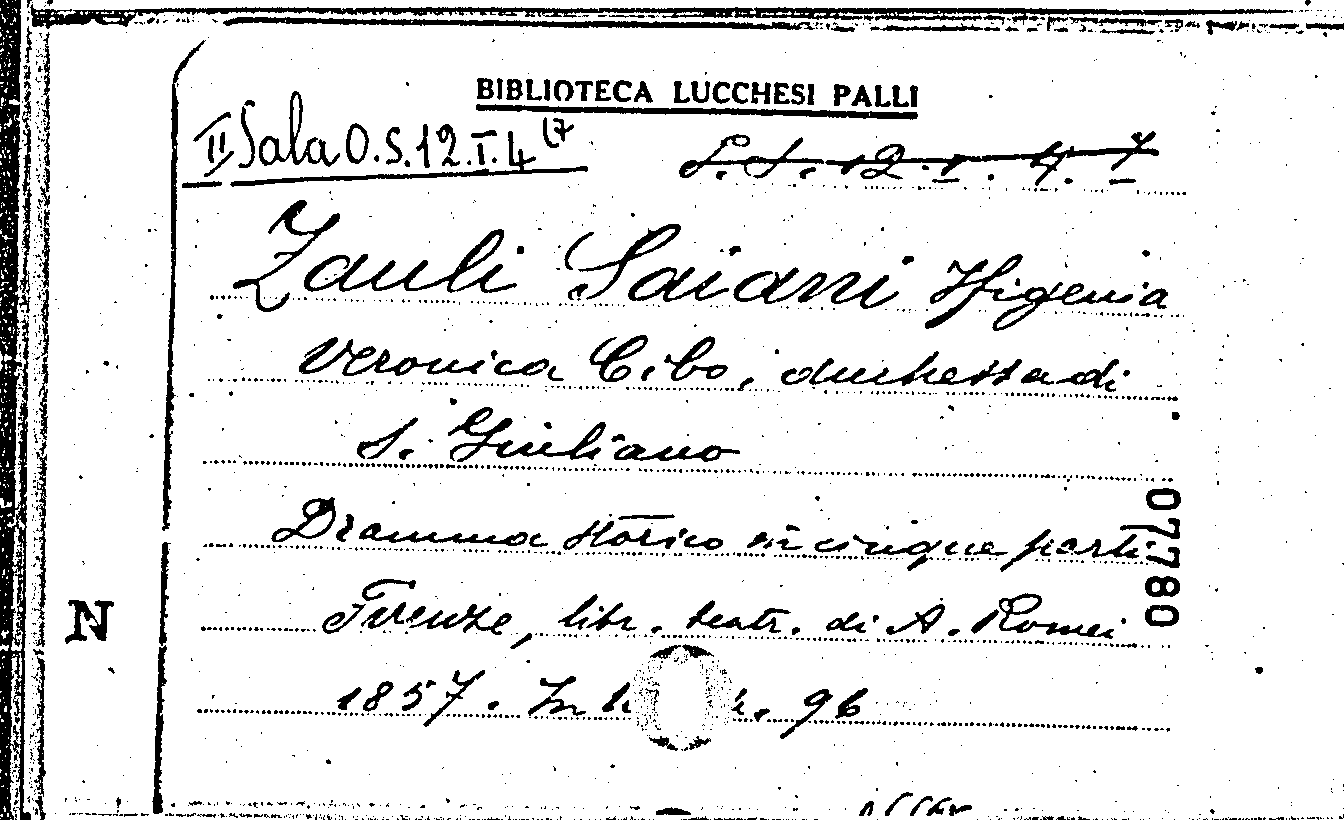 BIBLIOTECA LUCCHESI PALLI
II Sala O.S.12.I.4 (7
S.S. 12.I.4.7
Zauli Saiani Ifigenia
Veronica Cibo, duchessa di
S. Giuliano
Dramma storico in cinque parti
Firenze, libr. teatr. di A. Romei
1857. In 96
07780
N